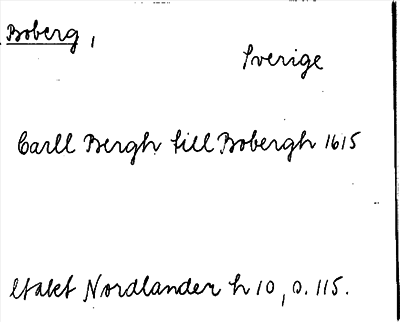 Boberg,
Sverige
Carll Bergh till Bobergh 1615
Utakt Nordlander h 10, s. 115.